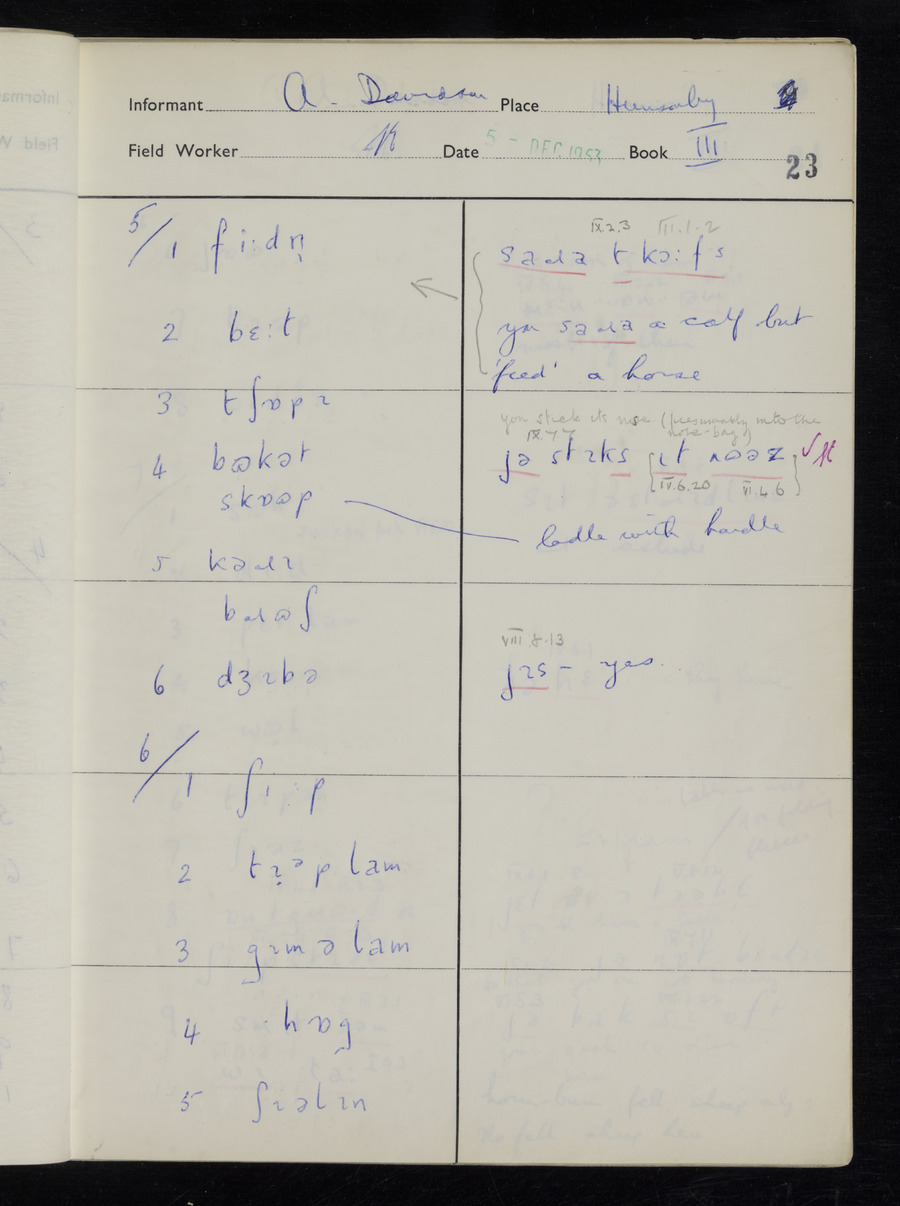 Informant A. Davidson Place Hunsonby
Field Worker Date 5 - DEC 1953 Book III
23
5/1 fi:dn̩
2 bɛ:t
3 tʃɒpɪ
4 bʊkət
skʊəp
5 kəɹɪ
bɹʊʃ
6 dʒɪbə
6/1 ʃi:p
2 tɪ̣ᵊp lam
3 gɪmə lam
4 hɒg
5 ʃɪəlɪn
IX.2.3 III.1.2
saɹə t kɔ:fs
you saɹə a calf but
'feed' a horse
you stick its nose (presumably into the
nose-bag)
IX.4.7
jə stɪks ɪt nʊəz
IV.6.20 VI.4.6
ladle with handle
VIII.8.13
jɪs - yes.